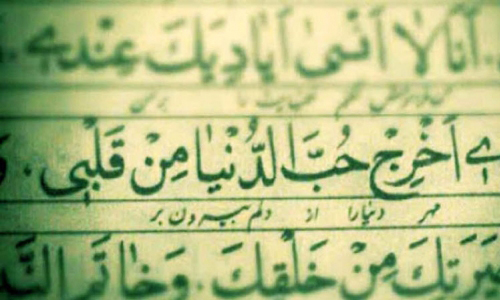 اَنَا لا اَنْسىٰ اَيادِيَكَ عِنْدے
بر من
اَخْرِجْ حُبَّ الدُّنْيٰا مِنْ قَلْبي.
مهر دنیارا از دلم بیرون بر
مِنْ خَلْقِكَ. وَخاتَمِ